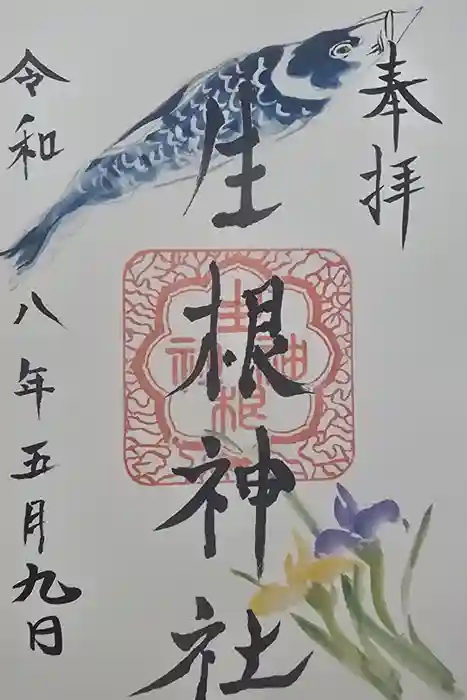 奉拝
生根神社
生根神社
令和八年五月九日